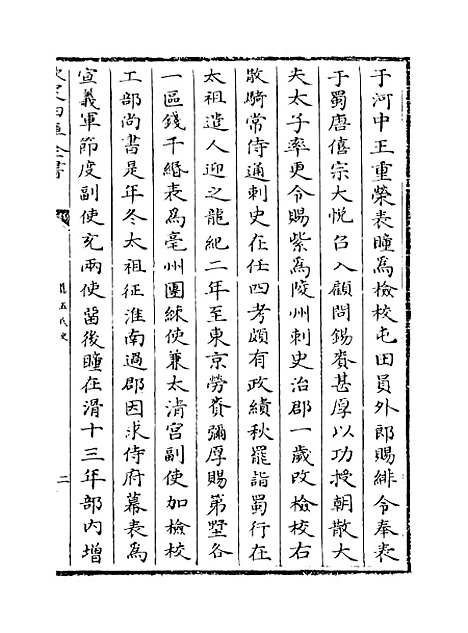 于河中王重榮表瞳為檢校屯田員外郎賜緋令奉表
于蜀唐僖宗大悅召入顧問錫賚甚厚以功授朝散大
夫太子率更令賜紫為陵州刺史治郡一歲改檢校右
散騎常侍通刺史在任四考頗有政績秋罷詣蜀行在
太祖遣人迎之龍紀二年至東京勞賚彌厚賜第墅各
一區錢千緡表為亳州團練使兼太清宮副使加檢校
工部尚書是年冬太祖征淮南過郡因求侍府幕表為
宣義軍節度副使充兩使留後瞳在滑十三年部內增
五代史
二